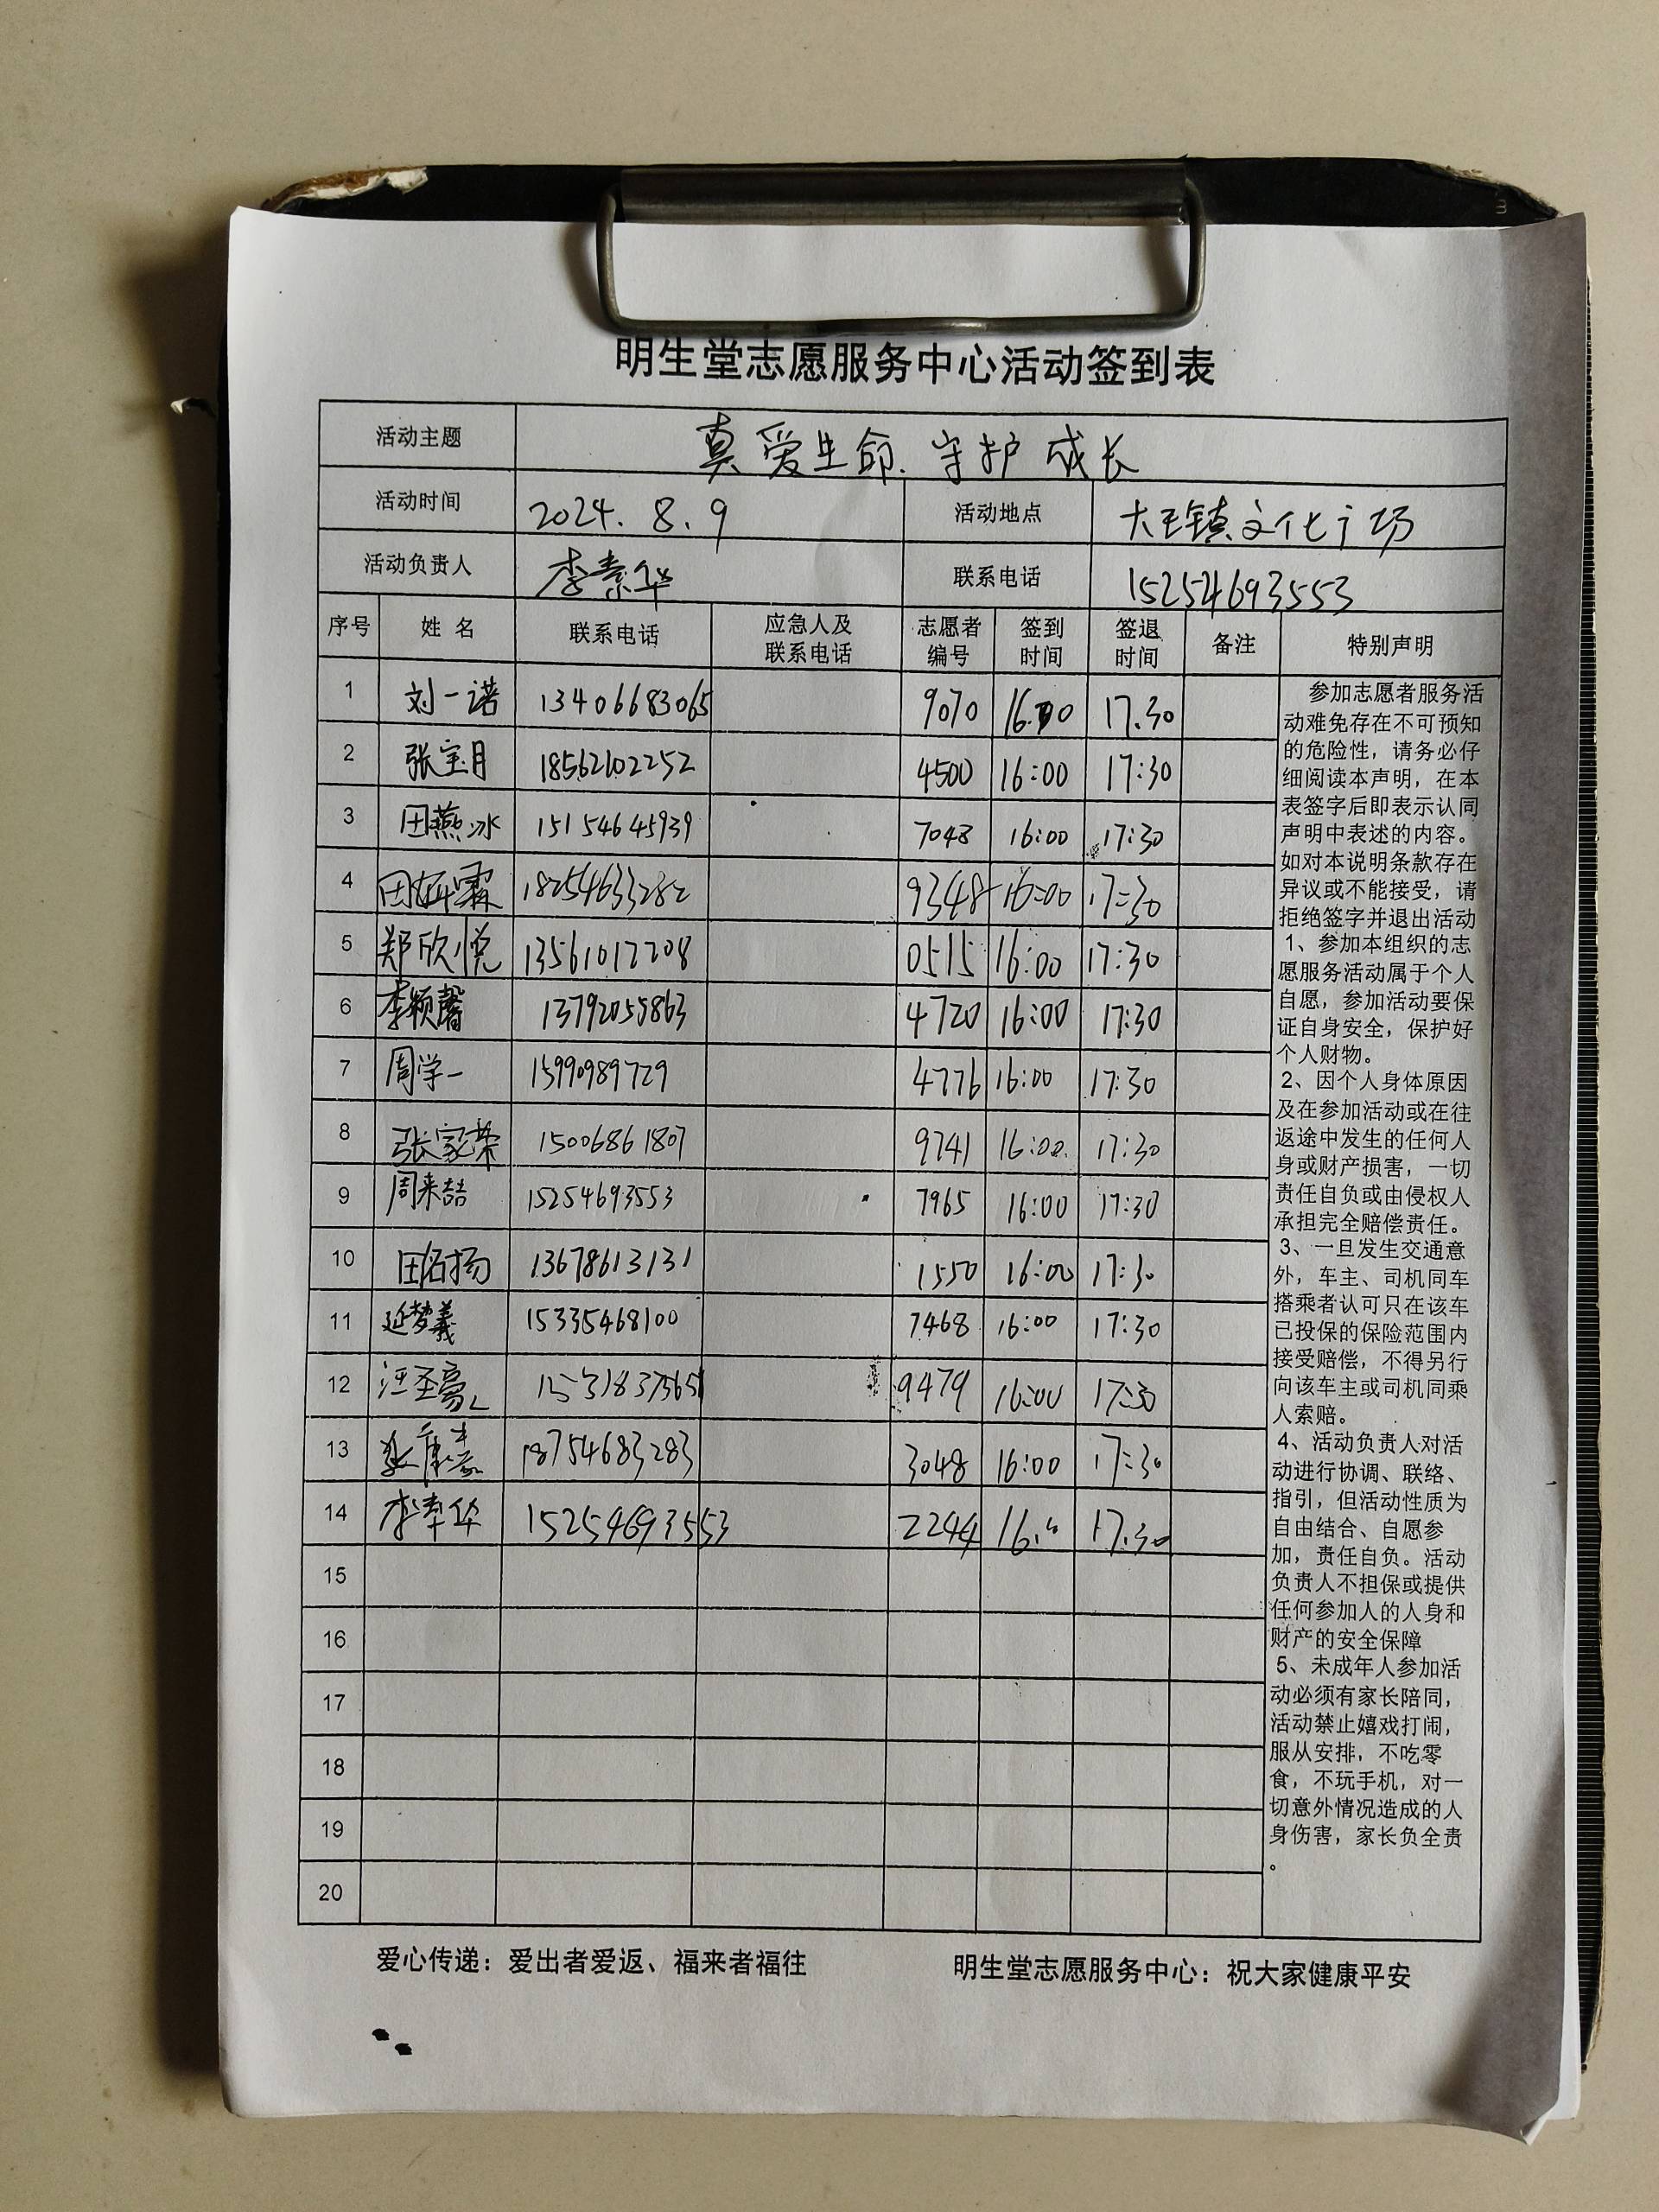 明生堂志愿服务中心活动签到表
活动主题 真爱生命、守护成长
活动时间 2024.8.9 活动地点 大王镇文化广场
活动负责人 李素华 联系电话 15254693553
序号 姓名 联系电话 应急人及联系电话 志愿者编号 签到时间 签退时间 备注 特别声明
1 刘一诺 13406683065 9070 16:00 17.30
2 张宝月 18562102252 4500 16:00 17:30
3 田燕冰 15154645939 7048 16:00 17:30
4 田妍霖 18254633282 9348 16:00 17:30
5 郑欣悦 13561012208 0515 16:00 17:30
6 李颖馨 13792055863 4720 16:00 17:30
7 周学一 15990989729 4776 16:00 17:30
8 张家荣 15006861807 9741 16:00. 17:30
9 周来喆 15254693553 7965 16:00 17:30
10 13678613131 1550 16:00 17:30
11 延梦羲 15335468100 7468 16:00 17:30
12 汪圣豪 15318373651 9479 16:00 17:30
13 18754683283 3048 16:00 17:30
14 李素华 15254693553 2244 16. 17.30
15
16
17
18
19
20
参加志愿者服务活
动难免存在不可预知
的危险性，请务必仔
细阅读本声明，在本
表签字后即表示认同
声明中表述的内容。
如对本说明条款存在
异议或不能接受，请
拒绝签字并退出活动
1、参加本组织的志
愿服务活动属于个人
自愿，参加活动要保
证自身安全，保护好
个人财物。
2、因个人身体原因
及在参加活动或在往
返途中发生的任何人
身或财产损害，一切
责任自负或由侵权人
承担完全赔偿责任。
3、一旦发生交通意
外，车主、司机同车
搭乘者认可只在该车
已投保的保险范围内
接受赔偿，不得另行
向该车主或司机同乘
人索赔。
4、活动负责人对活
动进行协调、联络、
指引，但活动性质为
自由结合、自愿参
加，责任自负。活动
负责人不担保或提供
任何参加人的人身和
财产的安全保障
5、未成年人参加活
动必须有家长陪同，
活动禁止嬉戏打闹，
服从安排，不吃零
食，不玩手机，对一
切意外情况造成的人
身伤害，家长负全责
。
爱心传递：爱出者爱返、福来者福往 明生堂志愿服务中心：祝大家健康平安